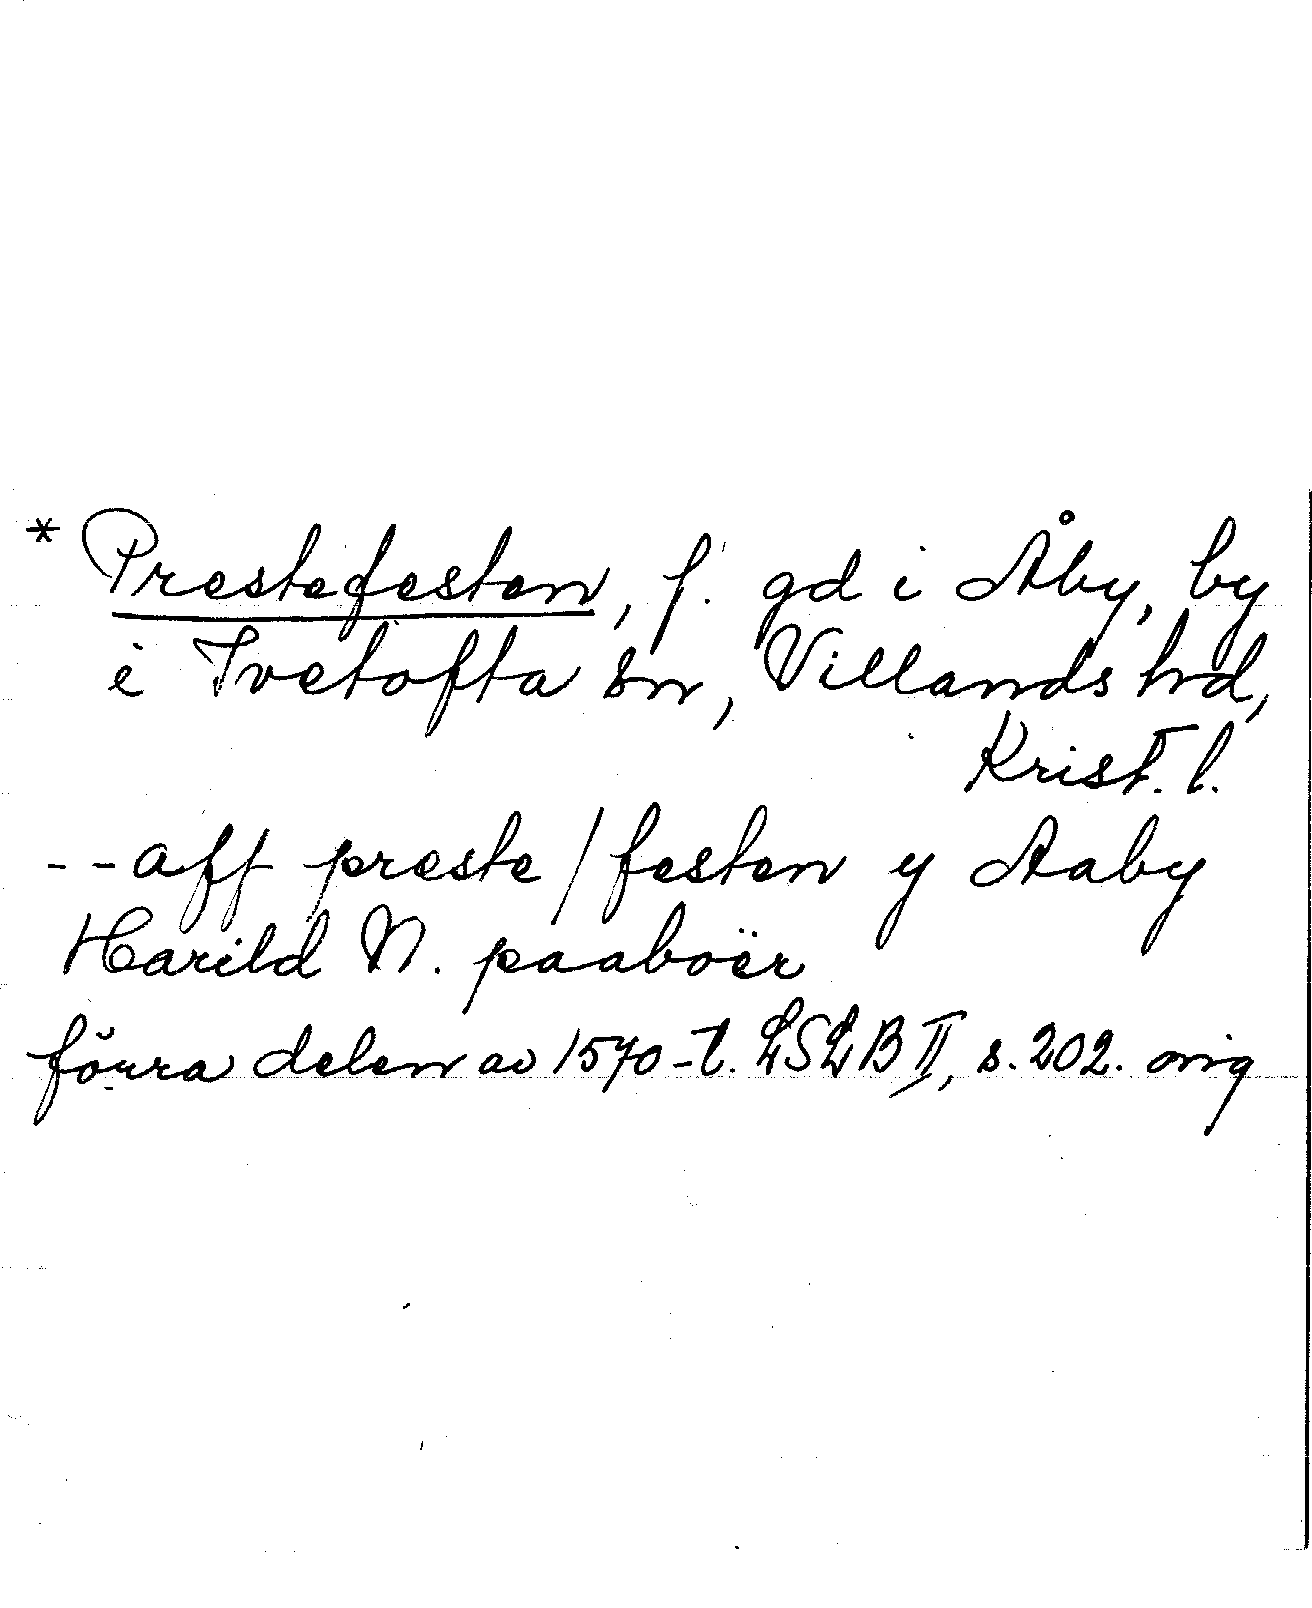 * Prestefesten, f. gd i Åby, by
i Ivetofta sn, Villands hd,
Krist. l.
-- aff preste/festen y Aaby
Harild N. paaboër
förra delen av 1570-t. LSLB II, s. 202. orig